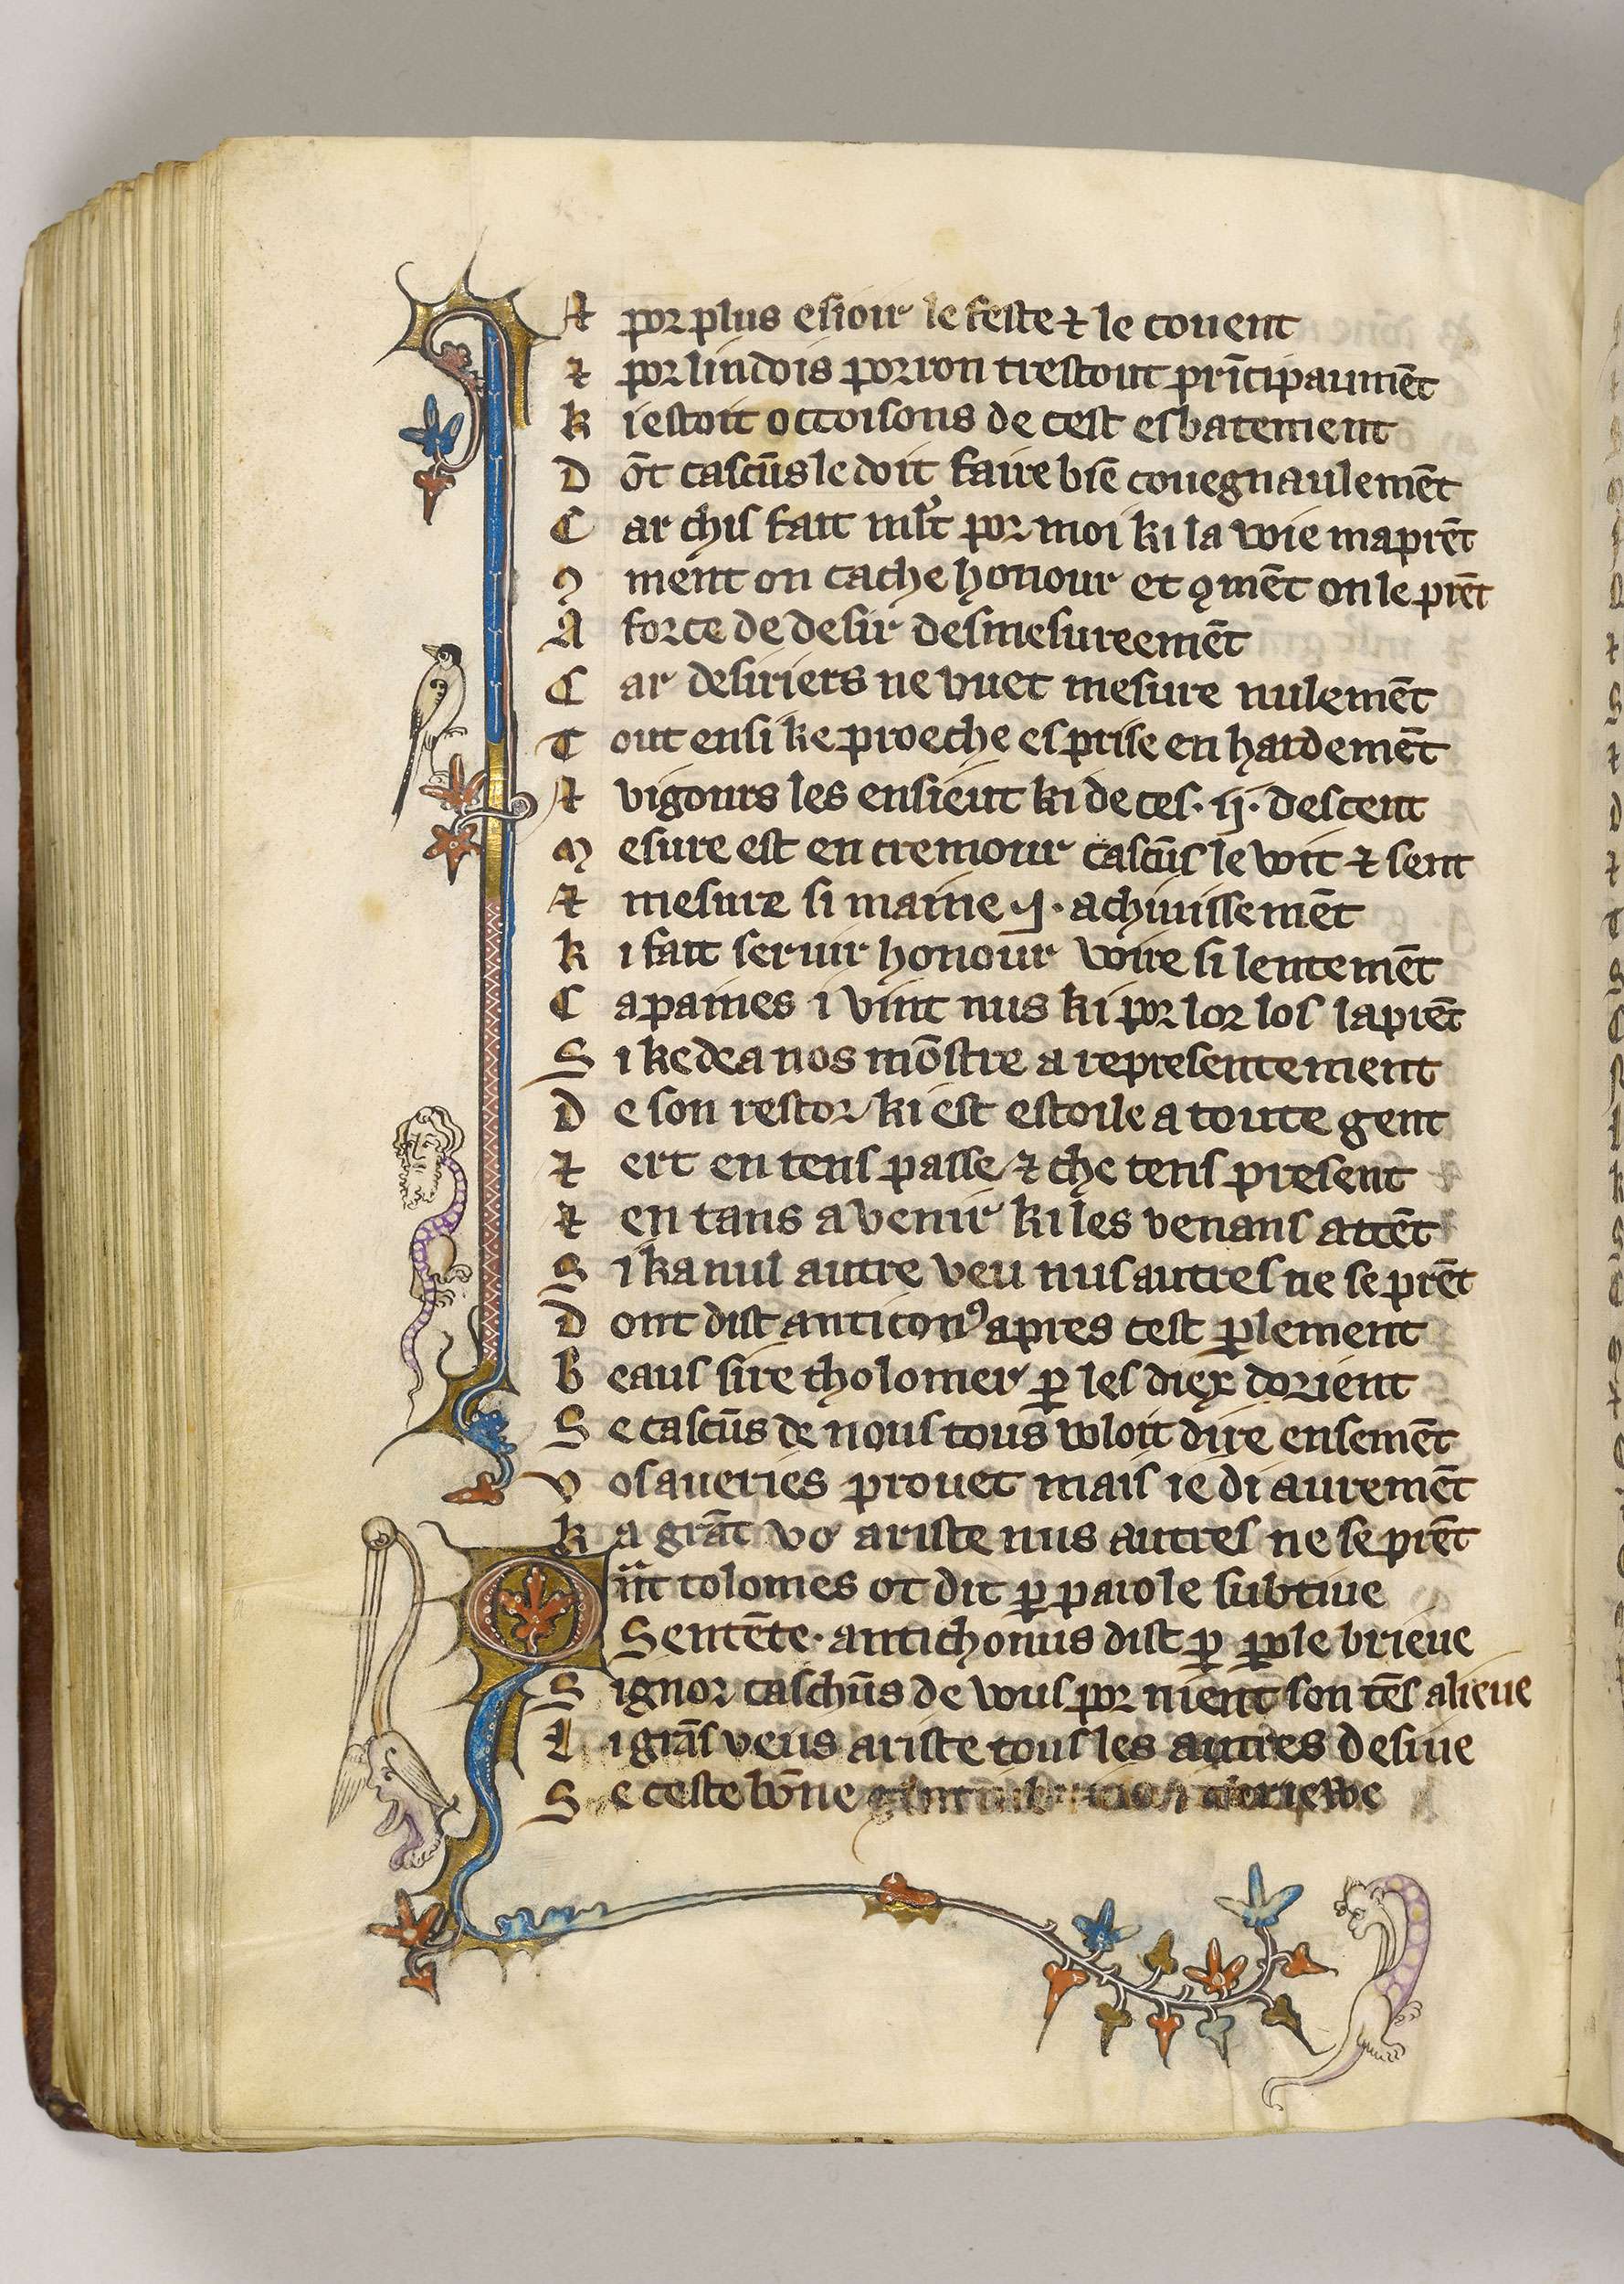 ⁊ por plus esioir le feste ⁊ le couent
⁊ por lindois porron trestout prīcipaumēt
k i estoit occoisons de cest esbatement
D ōt cascūs le doit faire biē couegnaulemēt
C ar chis fait mlt̄ por moi ki la voie maprēt
ꝯ ment on cache honour et ꝯmēt on le prēt
A force de desir desmesureemēt
C ar desiriers ne vuet mesure nulemēt
T out ensi ke proeche esprise en hardemēt
⁊ vigours les ensieut ki de ces · ij · descent
M esure est en cremour cascūs le voit ⁊ sent
⁊ mesure si maine · j · achiuissemēt
k i fait seruir honour voire si lentemēt
C a paines i vint nus ki por lor los laprēt
S i ke dea nos mōstre a representement
D e son restor ki est estoile a toute gent
⁊ ert en tens passe ⁊ che tens present
⁊ en tans a venir ki les venans attēt
S i ka nul autre veu nus autres ne se prēt
D ont dist anticonꝰ apres cest ꝑlement
B eaus sire tholomer ꝑ les diex dorient
S e cascūs de nous tous voloit dire ensemēt
V os aueries prouet mais ie di auremēt
k a grāt vo ariste nus autres ne se prēt
Q nt tolomes ot dit ꝑ parole subtiue
Sentēte · antichonus dist ꝑ ꝑole brieue
S ignor caschūs de vous por nient son tēs alieue
L i grās veus ariste tous les autres desiue
S e ceste bōne